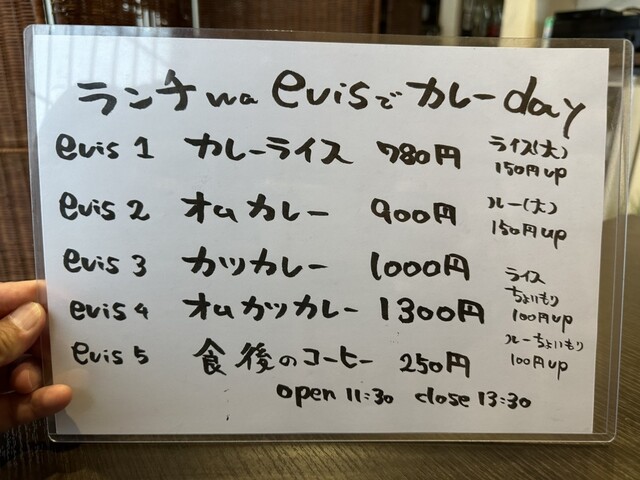 ランチwa evisでカレーday
evis 1 カレーライス 780円 ライス(大) 150円up
evis 2 オムカレー 900円 ルー(大) 150円up
evis 3 カツカレー 1000円 ライスちょいもり 100円up
evis 4 オムカツカレー 1300円 ルーちょいもり 100円up
evis 5 食後のコーヒー 250円
open 11:30 close 13:30